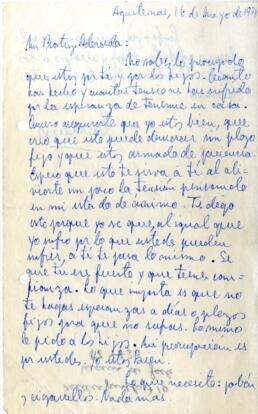 16 de Mayo de 1974
Mi Beatriz Adorada:
No sabes lo preocupado
que estoy por ti y por los hijos. Cuanto
has hecho y cuantas tensiones has sufrido
por la esperanza de tenerme en casa.
Quiero asegurarte que yo estoy bien, que
creo que esto puede demorar un plazo
fijo y que estoy armado de paciencia.
Espero que esto te sirva a ti al ali-
viarte un poco la tensión pensando
en mi estado de ánimo. Te digo
esto porque yo se que, al igual que
yo sufro por lo que ustedes puedan
sufrir, a ti te pasa lo mismo. Se
que tu eres fuerte y que tienes con-
fianza. Lo que importa es que no
te hagas esperanzas a días o plazos
fijos para que no sufras. Lo mismo
le pido a los hijos. Mi preocupación es
por ustedes. Yo estoy bien.
Lo que necesito: jabón
y cigarrillos. Nada mas.